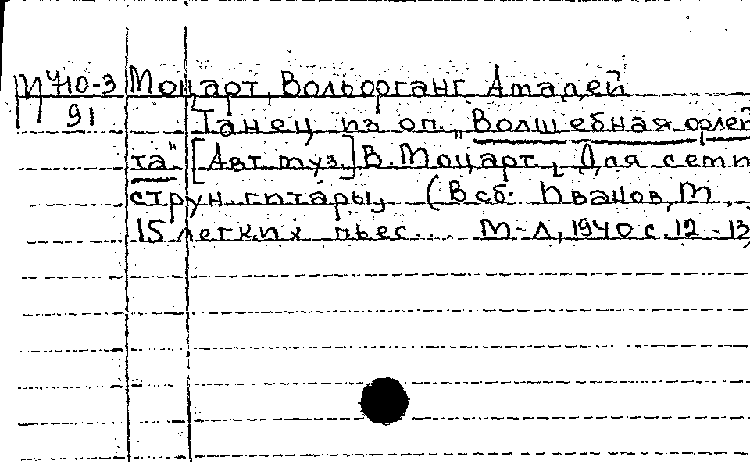 М710-3 Моцарт, Вольфганг Амадей
91 Танец из оп. „Волшебная флей
та" [Авт. муз.] В. Моцарт, Для семи
струн. гитары, (В сб: Иванов, М.,
15 легких пьес... М-Л, 1940 с. 12-13)